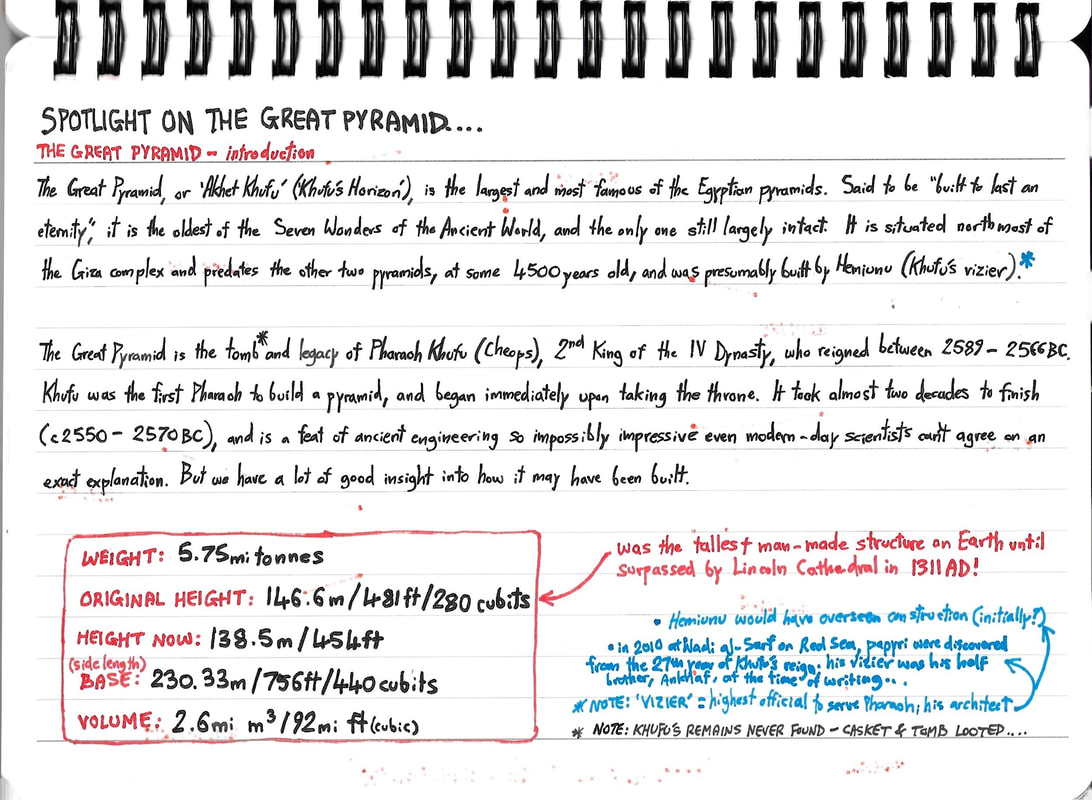 SPOTLIGHT ON THE GREAT PYRAMID....
THE GREAT PYRAMID - introduction
The Great Pyramid, or 'Akhet Khufu' (Khufu's Horizon'), is the largest and most famous of the Egyptian pyramids. Said to be "built to last an
eternity", it is the oldest of the Seven Wonders of the Ancient World, and the only one still largely intact. It is situated northmost of
the Giza complex and predates the other two pyramids, at some 4500 years old, and was presumably built by Hemiunu (Khufu's vizier).*
The Great Pyramid is the tomb* and legacy of Pharaoh Khufu (Cheops), 2nd King of the IV Dynasty, who reigned between 2589 - 2566 BC.
Khufu was the first Pharaoh to build a pyramid, and began immediately upon taking the throne. It took almost two decades to finish
(c2550 - 2570BC), and is a feat of ancient engineering so impossibly impressive even modern-day scientists can't agree on an
exact explanation. But we have a lot of good insight into how it may have been built.
WEIGHT: 5.75mi tonnes
ORIGINAL HEIGHT: 146.6m/481ft/280 cubits
HEIGHT NOW: 138.5m/454ft
(side length)
BASE: 230.33m/756ft/440 cubits
VOLUME: 2.6mi m³/92mi ft (cubic)
was the tallest man-made structure on Earth until
surpassed by Lincoln Cathedral in 1311AD!
• Hemiunu would have overseen construction (initially?)
• in 2010 at Wadi al-Jarf on Red Sea, papyri were discovered
from the 27th year of Khufu's reign: his vizier was his half
brother, Ankhaf, at the time of writing...
* NOTE: 'VIZIER' = highest official to serve Pharaoh; his architect
* NOTE: KHUFU'S REMAINS NEVER FOUND - CASKET & TOMB LOOTED....